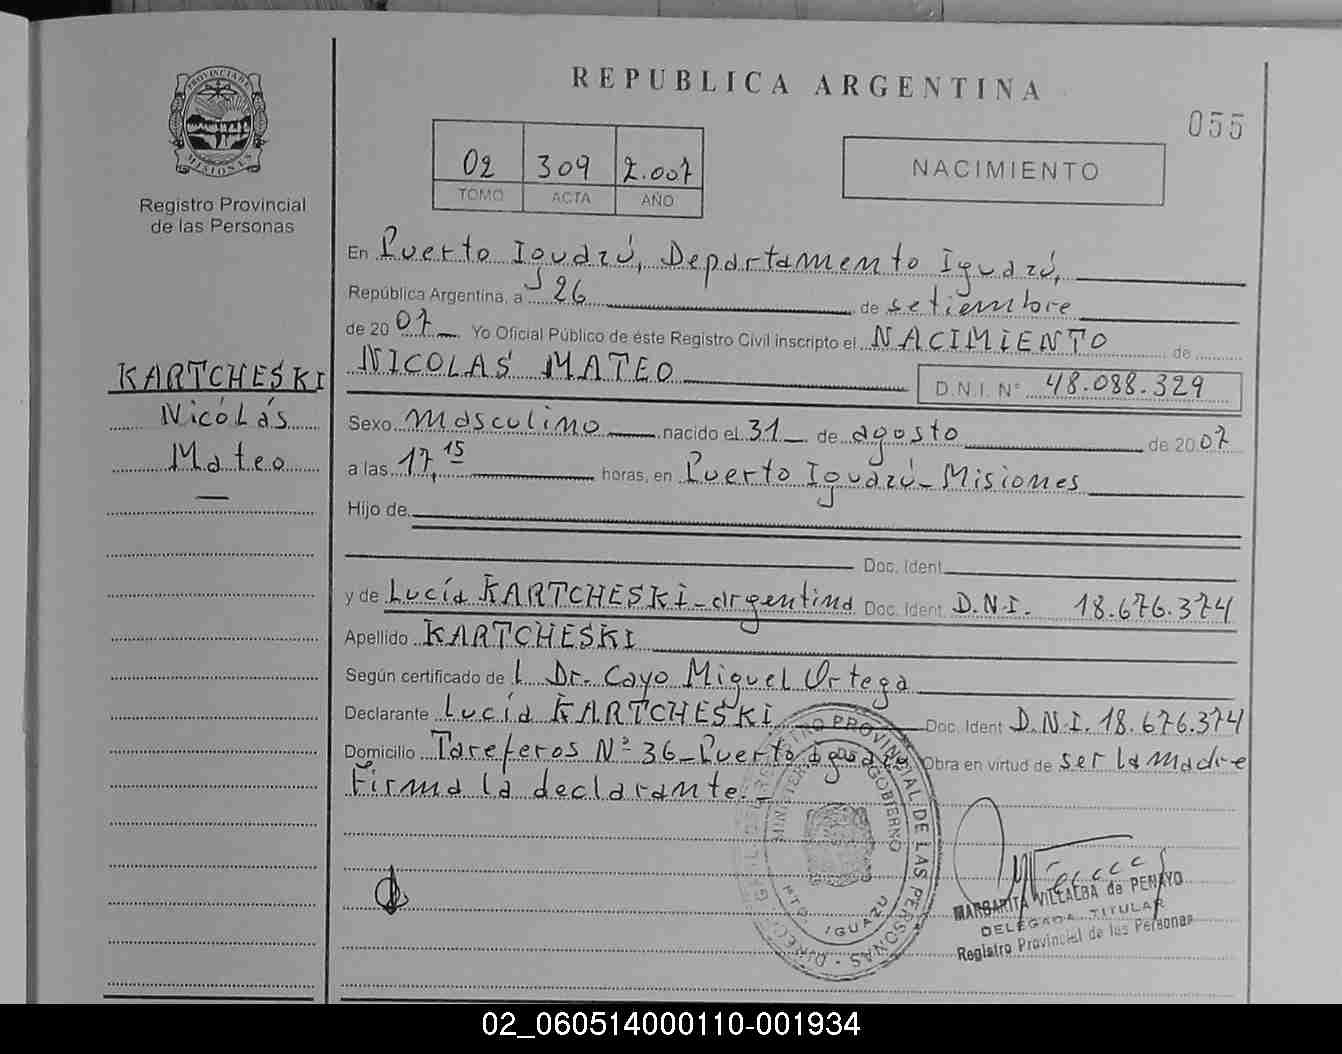 REPUBLICA ARGENTINA
055
PROVINCIA DE
MISIONES
Registro Provincial
de las Personas
02 309 2.007
TOMO ACTA AÑO
NACIMIENTO
En Puerto Iguazú, Departamento Iguazú,
República Argentina, a 26 de setiembre
de 20 07 Yo Oficial Público de éste Registro Civil inscripto el NACIMIENTO de
NICOLAS MATEO D.N.I. N° 48.088.329
KARTCHESKI
Nicolás
Mateo
Sexo masculino nacido el 31 de agosto de 20 07
a las 17,15 horas, en Puerto Iguazú - Misiones
Hijo de
Doc. Ident.
y de Lucía KARTCHESKI - argentina Doc. Ident. D.N.I. 18.676.374
Apellido KARTCHESKI
Según certificado de L Dr. Cayo Miguel Ortega
Declarante Lucía KARTCHESKI Doc. Ident D.N.I. 18.676.374
Domicilio Tareferos N° 36 - Puerto Iguazú Obra en virtud de ser la madre
Firma la declarante. -
REGISTRO PROVINCIAL DE LAS PERSONAS
MINISTERIO DE GOBIERNO
IGUAZU
MARGARITA VILLALBA de PENAYO
DELEGADA TITULAR
Registro Provincial de las Personas
02_060514000110-001934